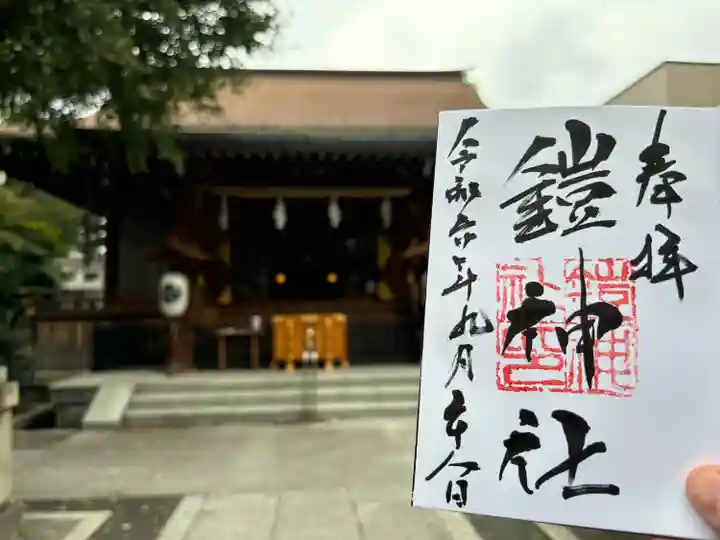 奉拝
鎧神社
令和六年九月